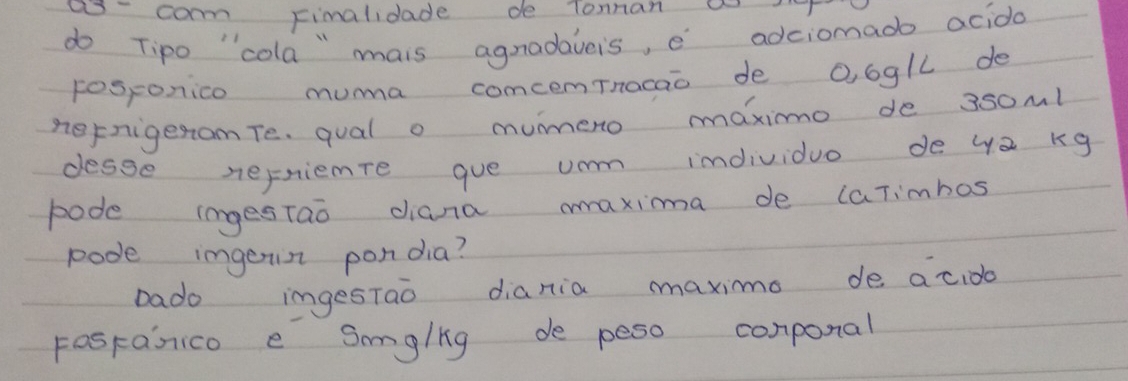 03- com Finalidade de Tornar as
do Tipo "cola" mais agradáveis, é adcionado acido
Fosforico numa concentração de 0,6g/L de
refrigerante. qual o número máximo de 350ml
desse refriente que um individuo de 42 kg
pode ingestão diaria maxima de latinhas
pode ingerir por dia?
Dado ingestão diaria maxima de ácido
Fosfórico e 5mg/kg de peso corporal